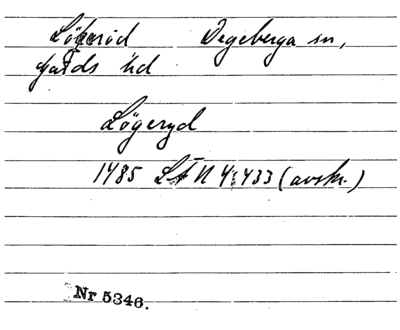 Lökaröd Degeberga sn,
Gärds hd
Lögeryd
1485 LÅN 4:433 (avskr.)
Nr 5346.